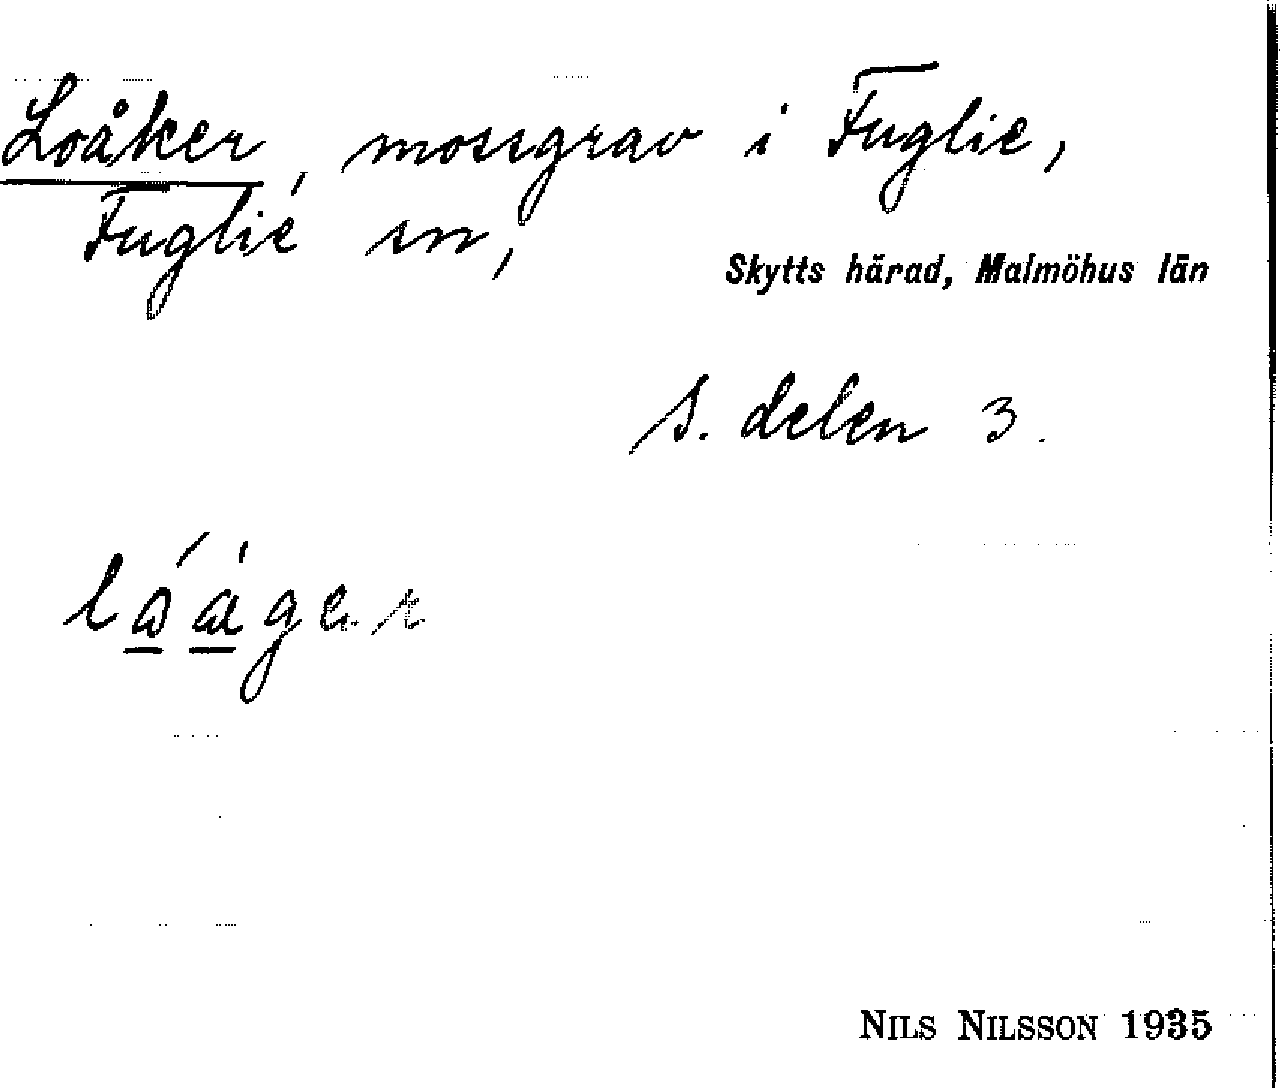 Loåker, mossgrav i Fuglie,
Fuglie sn,
Skytts härad, Malmöhus län
S. delen 3.
NILS NILSSON 1935